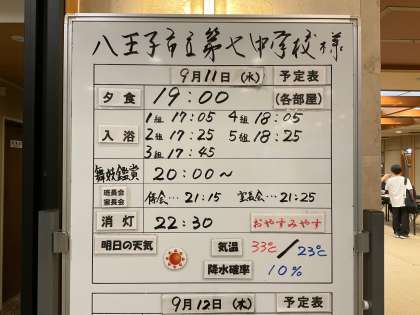 八王子市立第七中学校様
9月11日（水） 予定表
夕食 19:00 （各部屋）
入浴 1組 17:05 4組 18:05
2組 17:25 5組 18:25
3組 17:45
舞妓鑑賞 20:00〜
班長会 室長会 係会… 21:15 室長会… 21:25
消灯 22:30 おやすみやす
明日の天気 気温 33℃/23℃
降水確率 10%
9月12日（木） 予定表